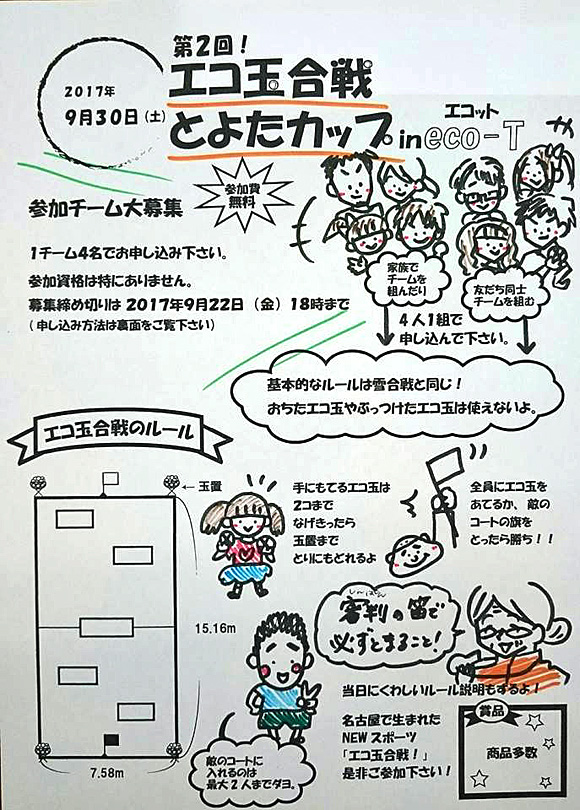 第2回！
エコ玉合戦
とよたカップ in eco-T
エコット
2017年
9月30日（土）
参加費
無料
参加チーム大募集
1チーム4名でお申し込み下さい。
参加資格は特にありません。
募集締め切りは 2017年9月22日（金）18時まで
（申し込み方法は裏面をご覧下さい）
家族で
チームを
組んだり
友だち同士
チームを組む
4人1組で
申し込んで下さい。
基本的なルールは雪合戦と同じ！
おちたエコ玉やぶっつけたエコ玉は使えないよ。
エコ玉合戦のルール
玉置
手にもてるエコ玉は
2コまで
なげきったら
玉置まで
とりにもどれるよ
全員にエコ玉を
あてるか、敵の
コートの旗を
とったら勝ち！！
15.16m
7.58m
しんぱん
審判の笛で
必ずとまること！
敵のコートに
入れるのは
最大2人までダヨ。
当日にくわしいルール説明もするよ！
名古屋で生まれた
NEWスポーツ
「エコ玉合戦！」
是非ご参加下さい！
賞品
商品多数